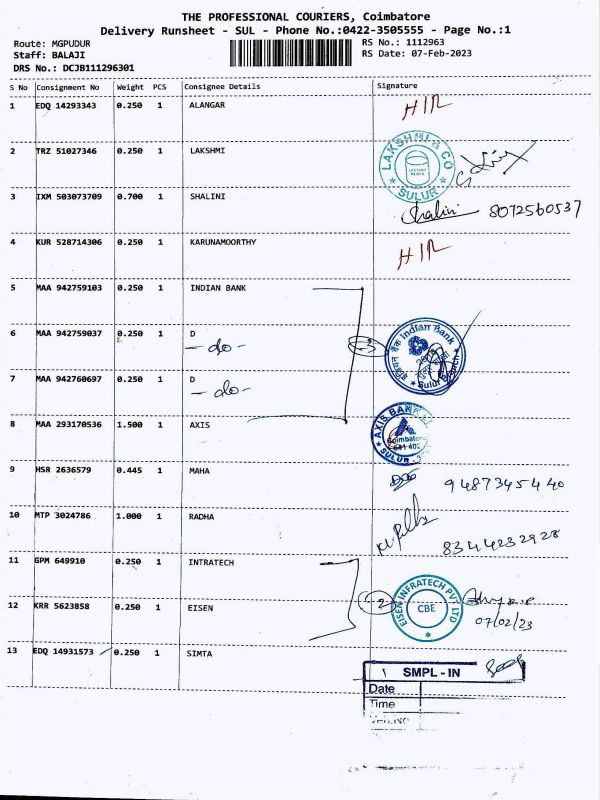 THE PROFESSIONAL COURIERS, Coimbatore
Delivery Runsheet - SUL - Phone No.:0422-3505555 - Page No.:1
Route: MGPUDUR
RS No.: 1112963
Staff: BALAJI
RS Date: 07-Feb-2023
DRS No.: DCJB111296301
S No Consignment No Weight PCS Consignee Details Signature
1 EDQ 14293343 0.250 1 ALANGAR
2 TRZ 51027346 0.250 1 LAKSHMI
LAKSHMI & CO
SULUR
3 IXM 503073709 0.700 1 SHALINI Shalini 8072560537
4 KUR 528714306 0.250 1 KARUNAMOORTHY
5 MAA 942759103 0.250 1 INDIAN BANK
6 MAA 942759037 0.250 1 D
- do - 3 Indian Bank
Sulur Branch
7 MAA 942760697 0.250 1 D
- do -
8 MAA 293170536 1.500 1 AXIS
AXIS BANK
Coimbatore
641 402
SULUR
9 HSR 2636579 0.445 1 MAHA 9487345440
10 MTP 3024786 1.000 1 RADHA 8344232928
11 GPM 649910 0.250 1 INTRATECH
12 KRR 5623858 0.250 1 EISEN 2 EISEN INFRATECH PVT LTD
CBE
07/02/23
13 EDQ 14931573 0.250 1 SIMTA
SMPL - IN
Date
Time